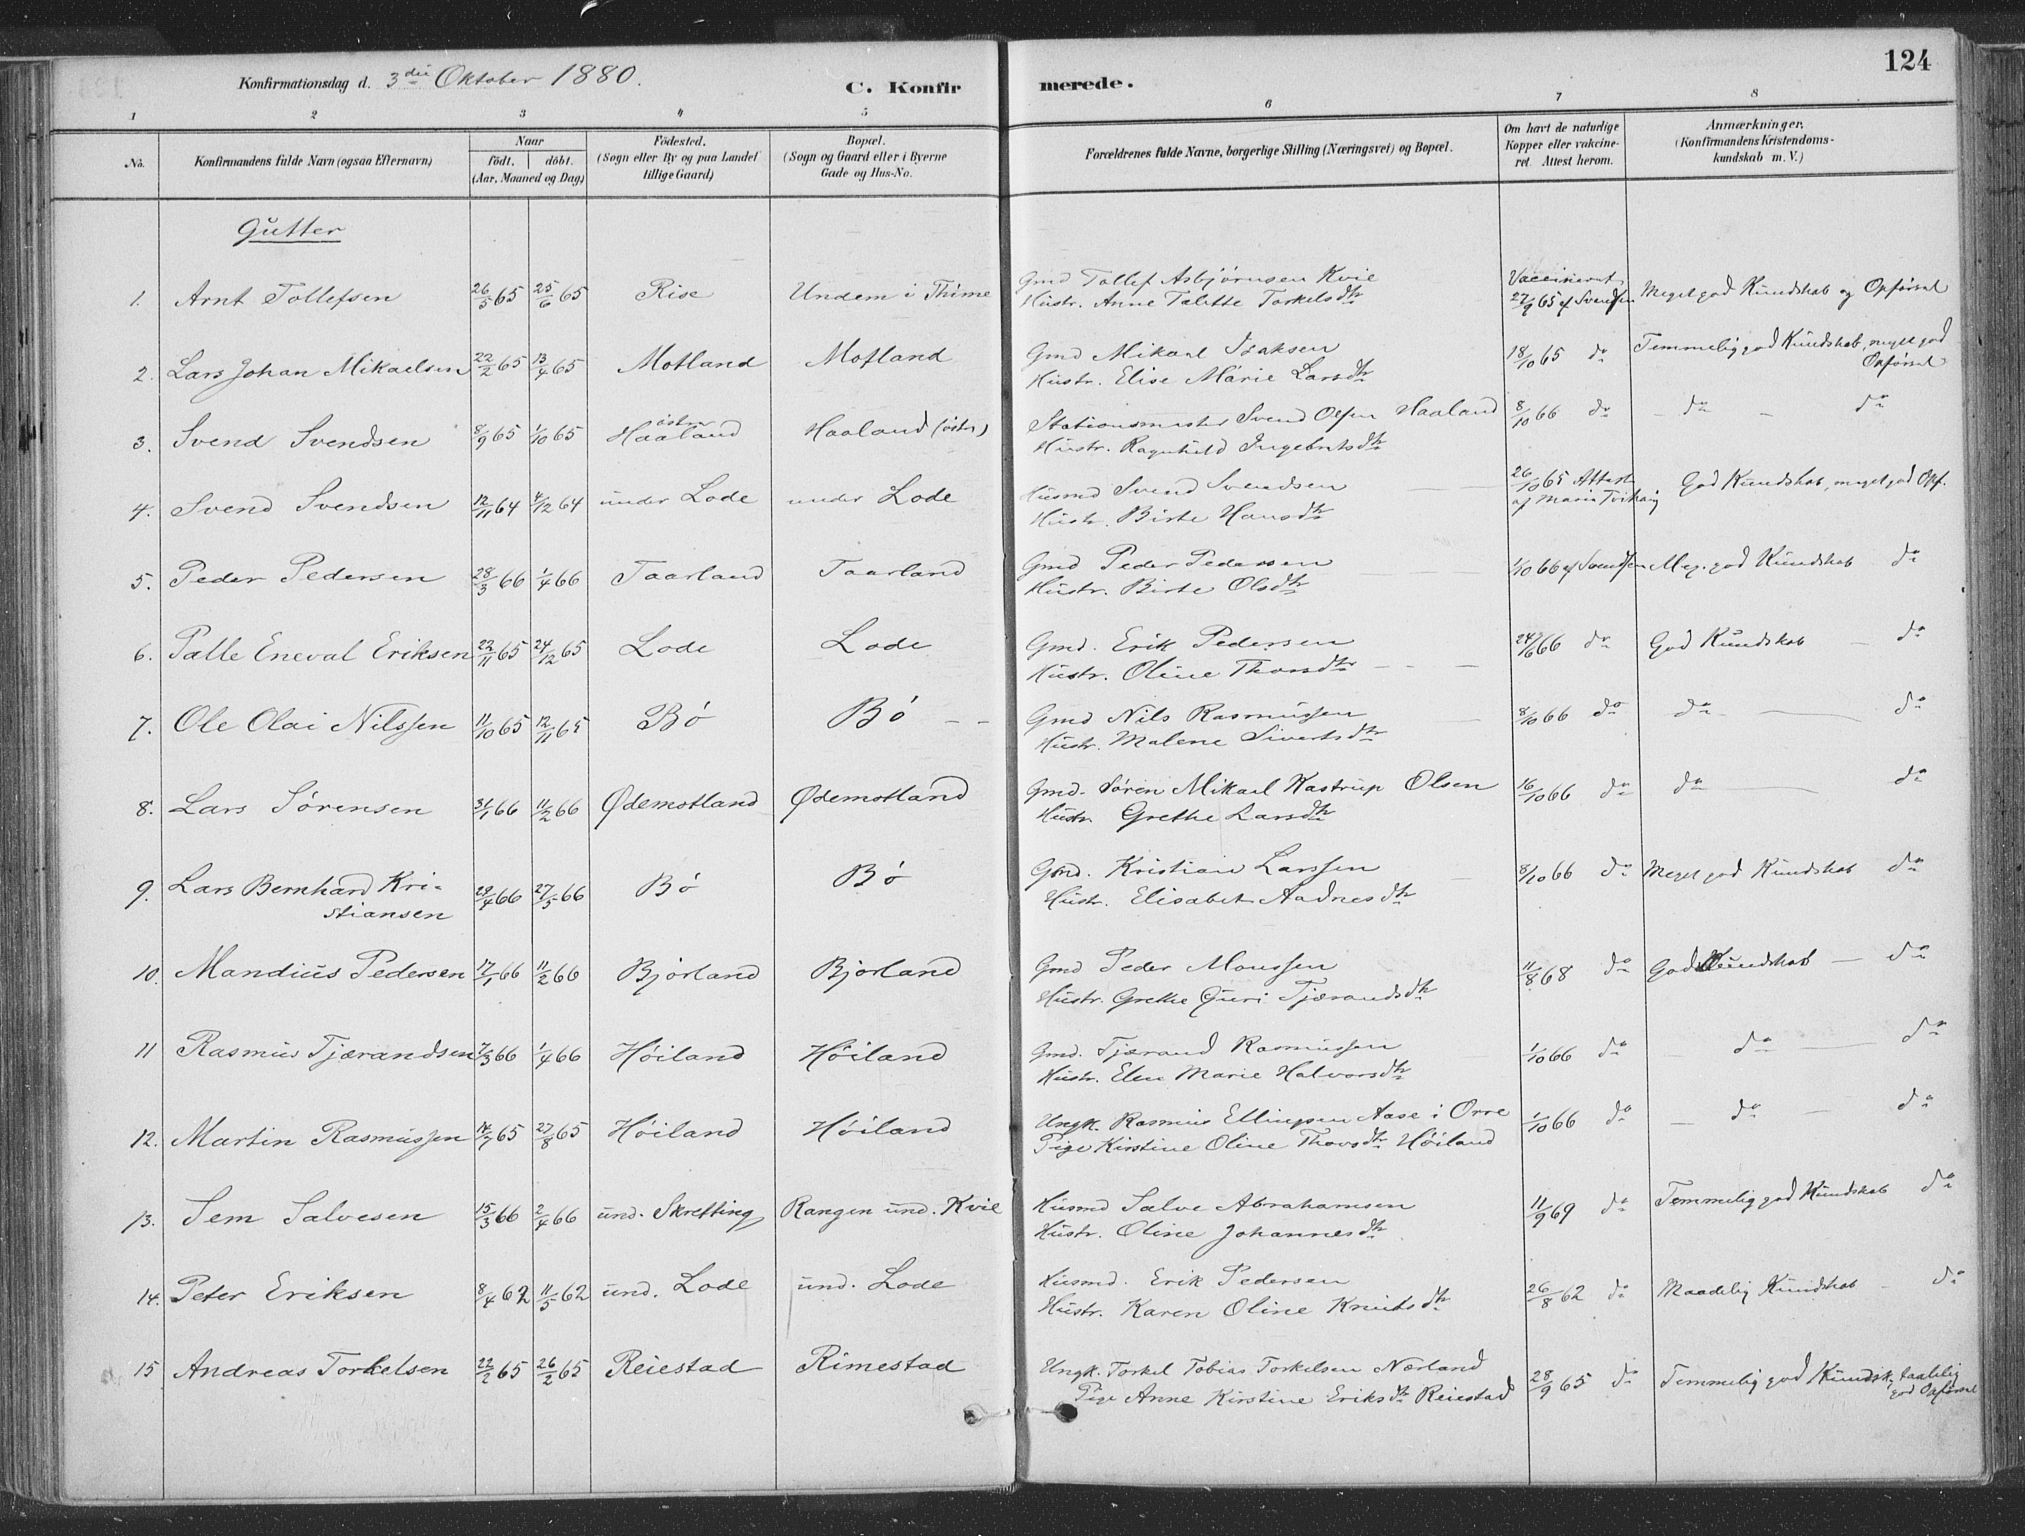 124
Konfirmationsdag d. 3die Oktober 1880. C. Konfirmerede.
1 2 3 4 5 6 7 8
No. Konfirmandens fulde Navn (ogsaa Efternavn) Naar födt. döbt. (Aar, Maaned og Dag) Födested. (Sogn eller By og paa Landet tillige Gaard) Bopæl. (Sogn og Gaard eller i Byerne Gade og Hus-No. Forældrenes fulde Navne, borgerlige Stilling (Næringsvei) og Bopæl. Om havt de naturlige Kopper eller vakcineret. Attest herom. Anmærkninger. (Konfirmandens Kristendomskundskab m. V.)
Gutter
1. Arnt Tollefsen 26/5 65 25/6 65 Rise Undem i Thime Gmd Tollef Asbjørnsen Kvie Vaccineret
Hustr. Anne Talette Torkelsdtr 27/9 65 af Svendsen Meget god Kundskab og Opførsel
2. Lars Johan Mikaelsen 22/2 65 13/4 65 Motland Motland Gmd Mikael Isaksen 18/10 65 do Temmelig god Kundskab, meget god
Hustr. Elise Marie Larsdtr Opførsel
3. Svend Svendsen 8/9 65 1/10 65 östre Haaland Haaland (östre) Stationsmester Svend Olsen Haaland 8/10 66 do – do – do
Hustr. Ragnhild Ingebretsdtr
4. Svend Svendsen 12/11 64 4/12 64 under Lode under Lode Husmd Svend Svendsen 26/10 65 Attest God Kundskab, meget god Opf.
Hustr. Birte Hansdtr af Maria
5. Peder Pedersen 28/3 66 1/4 66 Taarland Taarland Gmd Peder Pedersen 1/10 66 af Svendsen Meg. god Kundskab do
Hustr. Birte Olsdtr
6. Palle Eneval Eriksen 22/11 65 24/12 65 Lode Lode Gmd. Erik Pedersen 24/6 66 do God Kundskab – do
Hustr. Oline Thorsdtr – – –
7. Ole Olai Nilssen 11/10 65 12/11 65 Bö Bö – – Gmd Nils Rasmussen 8/10 66 do do – do
Hustr. Malene Sivertsdtr
8. Lars Sörensen 31/1 66 11/2 66 Ødemotland Ødemotland Gmd. Sören Mikael Kastrup Olsen 16/10 66 do do – do
Hustr. Grethe Larsdtr
9. Lars Bernhard Kri- 29/4 66 27/5 66 Bö Bö Gmd. Kristian Larssen 8/10 66 do Meget god Kundskab do
stiansen Hustr. Elisabet Aadnesdtr
10. Mandius Pedersen 17/1 66 11/2 66 Bjorland Bjorland Gmd Peder Monssen 11/8 68 do God Kundskab – do
Hustr. Grethe Guri Tjærandsdtr
11 Rasmus Tjærandsen 7/3 66 1/4 66 Höiland Höiland Gmd. Tjærand Rasmussen 1/10 66 do – do – do
Hustr. Elen Marie Halvorsdtr
12. Martin Rasmussen 14/7 65 27/8 65 Höiland Höiland Ungk. Rasmus Ellingsen Aase i Orre 1/10 66 do – do – do
Pige Kirstine Oline Thorsdtr Höiland
13. Sem Salvesen 15/3 66 2/4 66 und. Skretting Rangen und. Kvie Husmd Salve Abrahamsen 11/9 69 do Temmelig god Kundskab do
Hustr. Oline Johannesdtr
14. Peter Eriksen 8/4 62 11/5 62 und. Lode und. Lode Husmd. Erik Pedersen 26/8 62 do Maadelig Kundskab – do
Hustr. Karen Oline Knutsdtr
15 Andreas Torkelsen 22/2 65 26/2 65 Reiestad Rimestad Ungk. Torkel Tobias Torkelsen Nærland 28/9 65 do Temmelig god Kundsk, taalelig
Pige Anne Kirstine Eriksdtr Reiestad god Opførsel